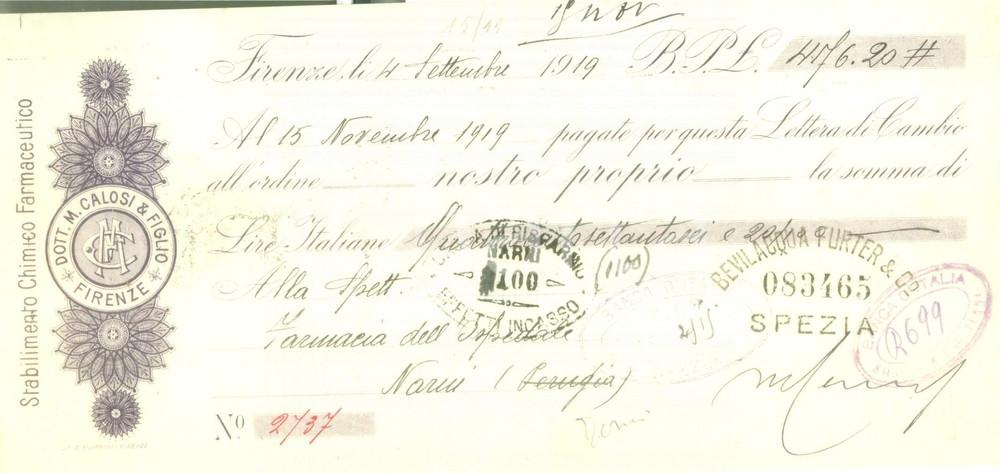 15/11
Firenze, li 4 Settembre 1919 B.P.L. 476.20 #
Al 15 Novembre 1919 pagate per questa Lettera di Cambio
all'ordine nostro proprio la somma di
Lire Italiane settantasei e 20/100
Alla Spett.
Farmacia dell'Ospedale
Narni (Perugia)
Nº 2737
Stabilimento Chimico Farmaceutico
DOTT. M. CALOSI & FIGLIO
FIRENZE
CASSA DI RISPARMIO
NARNI
1100
EFFETTI INCASSO
(1100)
BEVILACQUA FURTER & Co
083465
SPEZIA
BANCA D'ITALIA
R699